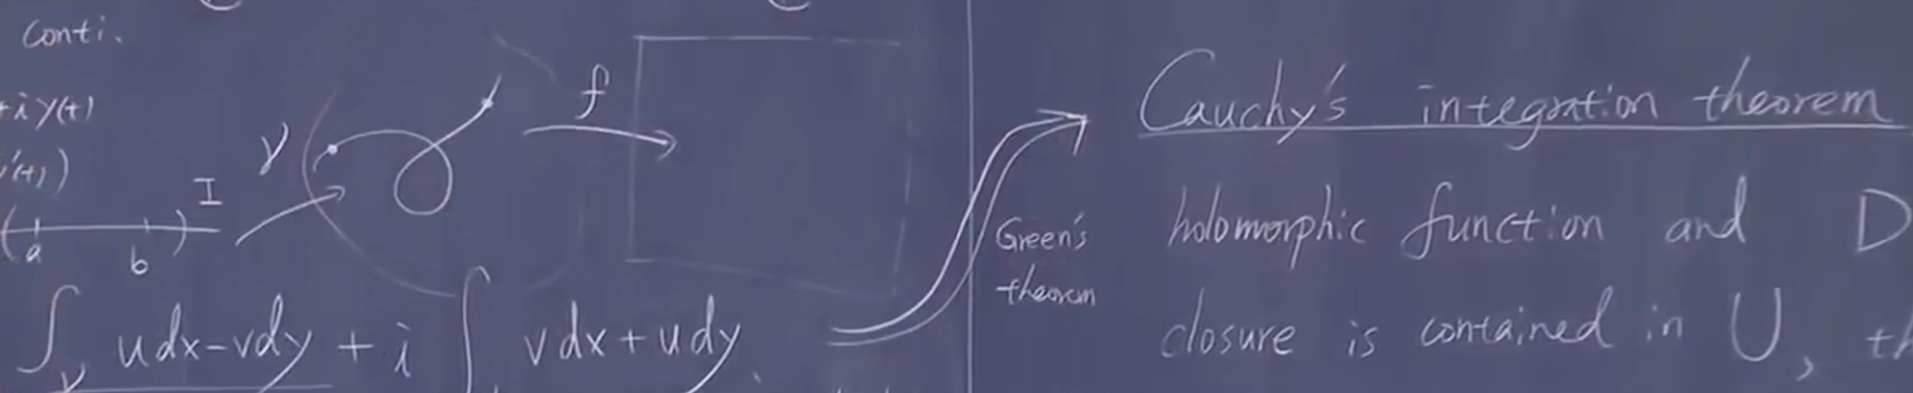 conti.
+iy(t)
y'(t))
γ
f
I
a
b
∫γ udx-vdy + i ∫ vdx+udy
Green's
theorem
Cauchy's integration theorem
holomorphic function and D
closure is contained in U, th